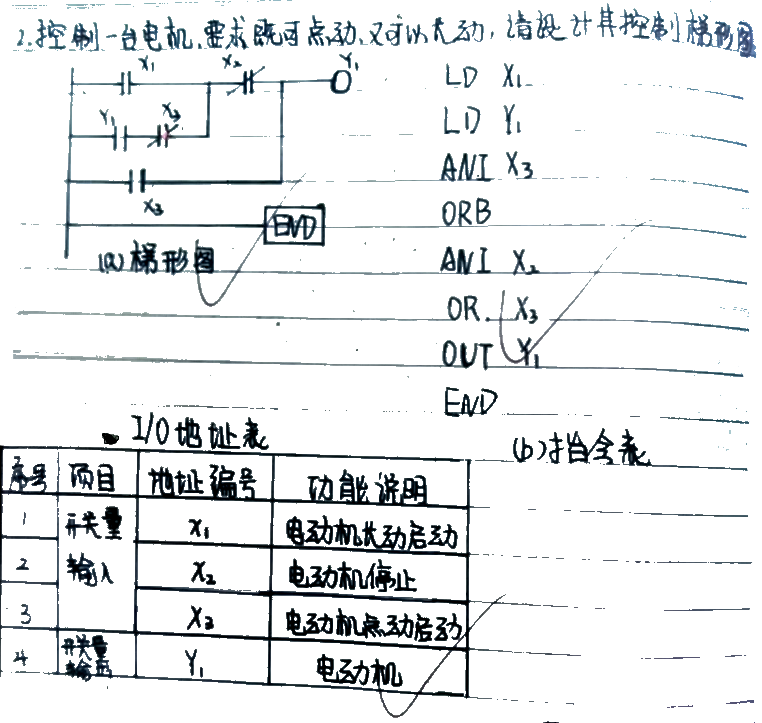 2.控制一台电机,要求既可点动,又可以长动,请设计其控制梯形图
X₁ X₂ Y₁
Y₁ X₃
X₃
END
(a)梯形图
LD X₁
LD Y₁
ANI X₃
ORB
ANI X₂
OR. X₃
OUT Y₁
END
(b)指令表
I/O地址表
序号 项目 地址编号 功能说明
1 开关量输入 X₁ 电动机长动启动
2 X₂ 电动机停止
3 X₃ 电动机点动启动
4 开关量输出 Y₁ 电动机